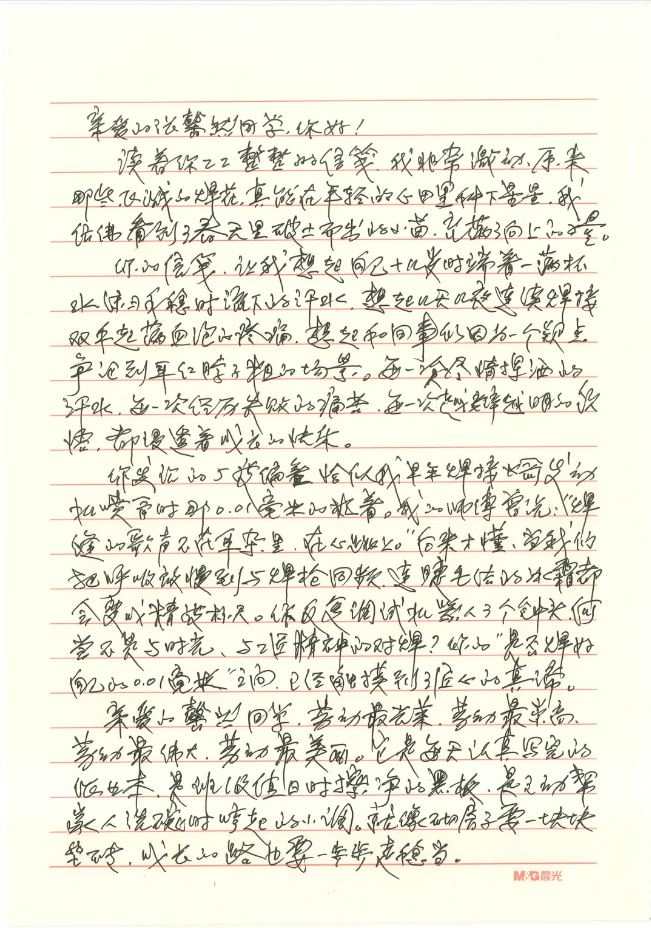 亲爱的张馨然同学,你好!
读着你工工整整的信笺,我非常激动,原来
那些闪烁的焊花,真能在年轻的心田里种下星星,我
仿佛看到了春天里破土而出的小苗,充满了向上的力量。
你的信笺,让我想起自己十几岁时端着一满杯
水练习手稳时流下的汗水,想起几天几夜连续焊接
双手起满血泡的疼痛,想起和同事们因为一个观点
争论到耳红脖子粗的场景。每一次尽情挥洒的
汗水,每一次经历失败的痛苦,每一次
悟,都浸透着成长的快乐。
你发论的5格偏差恰似我早年焊接火箭发动
机喷管时那0.01毫米的执着。我的师傅曾说:“焊
缝的歌声不在耳朵里,在心跳上。”后来才懂,当我们
把呼吸放慢到与焊枪同频,连睫毛结的冰霜都
会变成精密标尺。你反复调试机器人3个钟头,何
尝不是与时光、与工匠精神的对焊?你的“是否焊好
自己的0.01毫米”之问,已经触摸到了匠心的真谛。
亲爱的馨然同学,劳动最光荣、劳动最崇高、
劳动最伟大、劳动最美丽。它是每天认真写完的
作业本,是班级值日时擦净的黑板,是主动帮
家人洗碗时哼起的小调。就像砌房子要一块块
垒砖,成长的路也要一步步走稳当。
M&G晨光